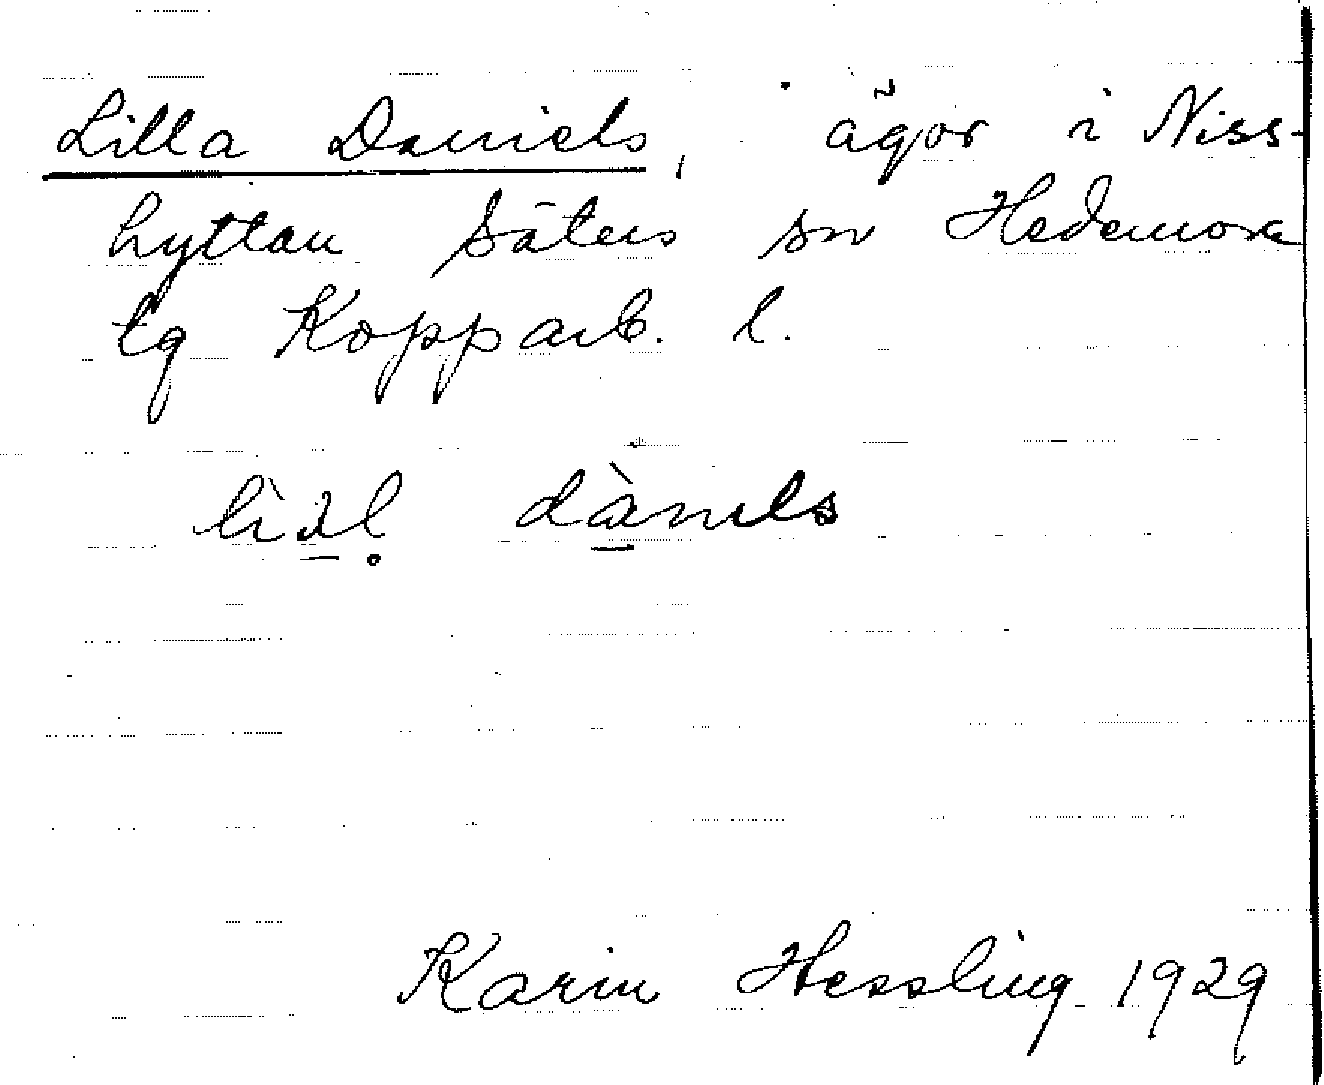 Lilla Daniels, ägor i Niss-
hyttan Säters sn Hedemora
tg Kopparb. l.
dànɩls
Karin Hessling 1929